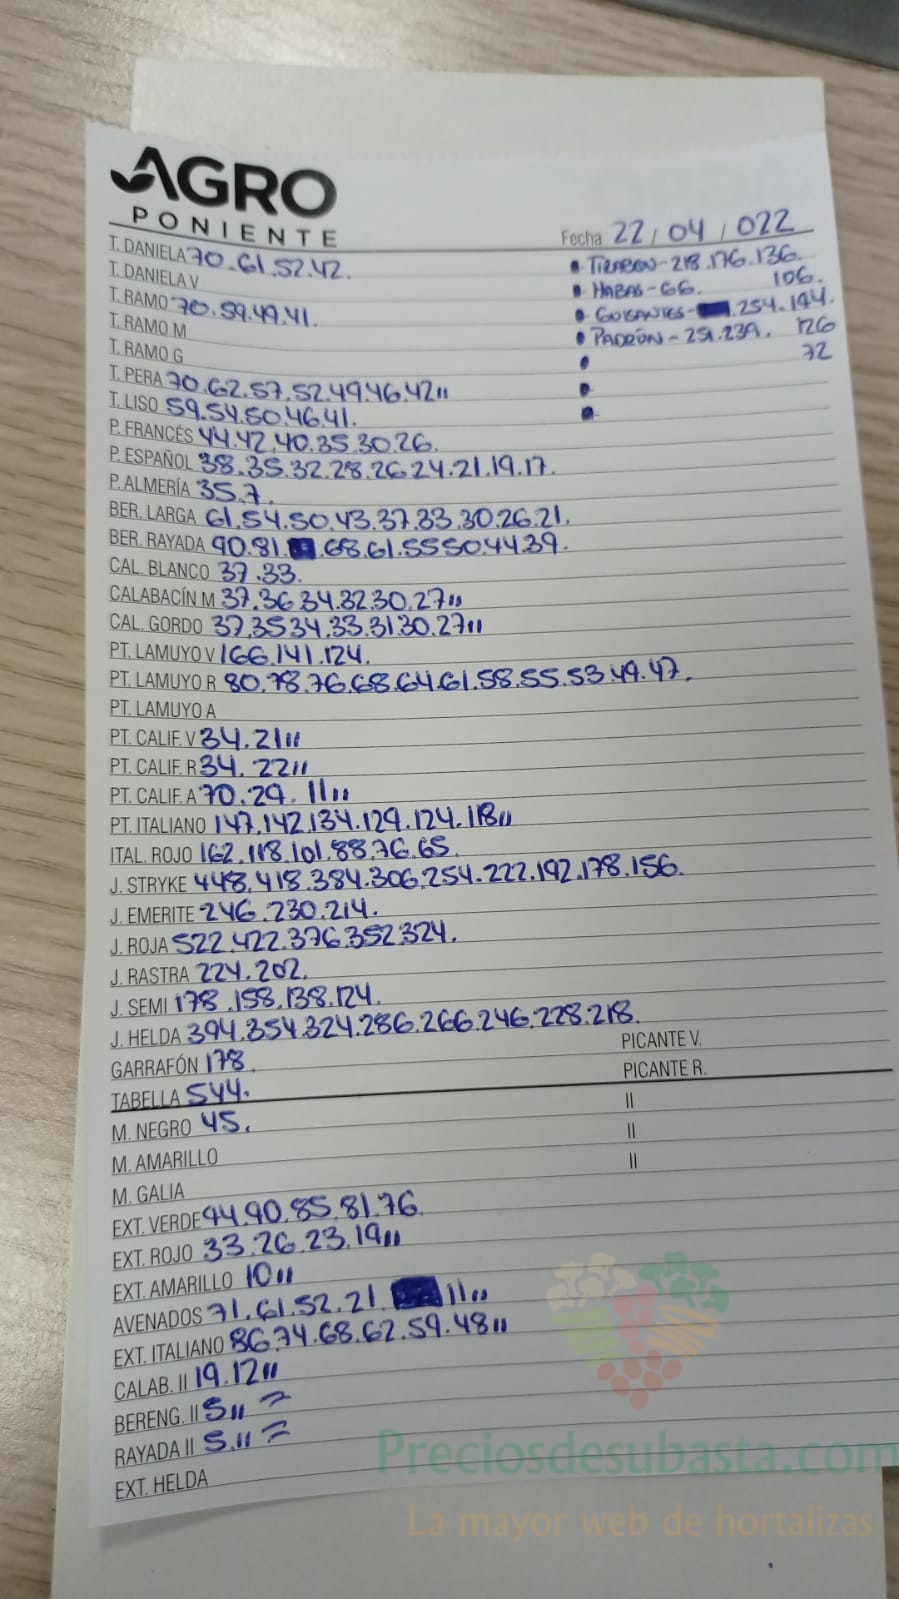 AGRO
PONIENTE
Fecha 22/04/022
T. DANIELA 70.61.52.42.
• TIRABEQ-218.176.136.
T. DANIELA V
• HABAS-66. 106.
T. RAMO 70.59.49.41.
• GUISANTES- .254.194.
T. RAMO M
• PADRÓN-251.239. 126
T. RAMO G
72
T. PERA 70.62.57.52.49.46.42"
T. LISO 59.54.50.46.41.
P. FRANCÉS 44.42.40.35.30.26.
P. ESPAÑOL 38.35.32.28.26.24.21.19.17.
P. ALMERÍA 35.7.
BER. LARGA 61.54.50.43.37.33.30.26.21.
BER. RAYADA 90.81. .68.61.55.50.44.39.
CAL. BLANCO 37.33.
CALABACÍN M 37.36.34.32.30.27"
CAL. GORDO 37.35.34.33.31.30.27"
PT. LAMUYO V 166.141.124.
PT. LAMUYO R 80.78.76.68.64.61.58.55.53.49.47.
PT. LAMUYO A
PT. CALIF. V 34.21"
PT. CALIF. R 34.22"
PT. CALIF. A 70.29.11"
PT. ITALIANO 147.142.134.129.124.118"
ITAL. ROJO 162.118.101.88.76.65.
J. STRYKE 448.418.384.306.254.222.192.178.156.
J. EMERITE 246.230.214.
J. ROJA 522.422.376.352.324.
J. RASTRA 224.202.
J. SEMI 178.158.138.124.
J. HELDA 394.354.324.286.266.246.228.218.
GARRAFÓN 178.
PICANTE V.
TABELLA 544.
PICANTE R.
M. NEGRO 45.
II
M. AMARILLO
II
M. GALIA
II
EXT. VERDE 94.90.85.81.76.
EXT. ROJO 33.26.23.19"
EXT. AMARILLO 10"
AVENADOS 71.61.52.21. 11"
EXT. ITALIANO 86.74.68.62.59.48"
CALAB. II 19.12"
BERENG. II 5" 7
RAYADA II 5." 7
EXT. HELDA
Preciosdesubasta.com
La mayor web de hortalizas